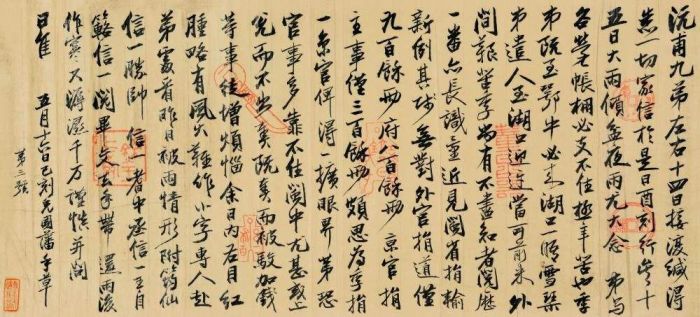 沅甫九弟左右十四日接緘得
悉一切家信於是日酉刻行十
五日大雨傾盆夜雨尤大念弟与
各營帳棚必支不住極辛苦也季
弟既至鄂中必來湖口一晤雪琴
弟遣人至湖口近迓當可前來外
間報季尚有不盡知者閱歷
一番亦長識近見閩省捐輸
新例其無對外官捐道僅
九百餘兩府八百餘兩京官捐
主事僅三百餘兩頗思為季捐
一京官俾得一擴眼界第恐
官事多靠不住閩中尤甚或上
兌而不出奏既奏而被駁加錢
等事徒增煩惱余日內右目紅
腫略有風火難作小字專人赴
弟處省昨日被雨情形附筠仙
信一勝帥信一者中丞信一
信一閱畢交去手帶還雨後
作寒又潮濕千万謹慎并問
日佳 五月十六日巳刻兄國藩手草
第三號